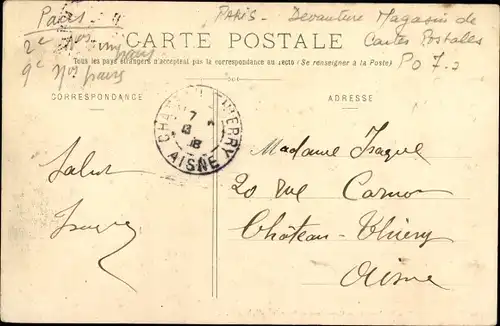 Paris
PARIS - Devanture Magasin de
Cartes Postales
2e
9e nos pairs
P0 7.-
CARTE POSTALE
Tous les pays étrangers n'acceptent pas la correspondance au recto (Se renseigner à la Poste)
CORRESPONDANCE
ADRESSE
CHATEAU-THIERRY
7
13
18
AISNE
Salut
Madame Isaque
20 rue Carnot
Château-Thierry
Aisne